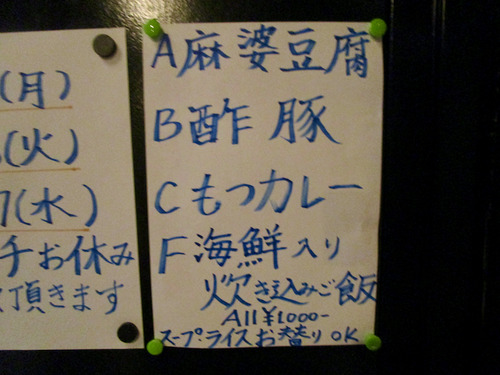 (月)
(火)
(水)
チお休み
頂きます
A麻婆豆腐
B酢豚
Cもつカレー
F海鮮入り
炊き込みご飯
All ¥1000-
スープ・ライスお替りOK